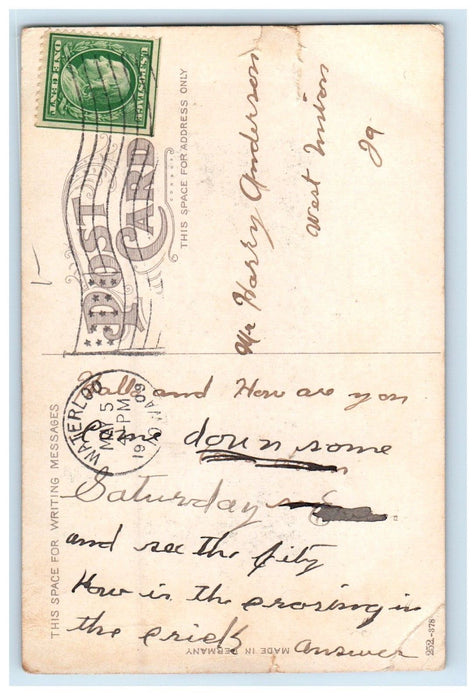 U.S. POSTAGE
ONE CENT
POST CARD
THIS SPACE FOR ADDRESS ONLY
Mr Harry Anderson
West Union
Ia
THIS SPACE FOR WRITING MESSAGES
WATERLOO
MAY 5
PM
1909
IOWA
Hallo and How are you
Come down some
Saturday
and see the City
How is the crossing in
the crick
answer
MADE IN GERMANY
252.-378